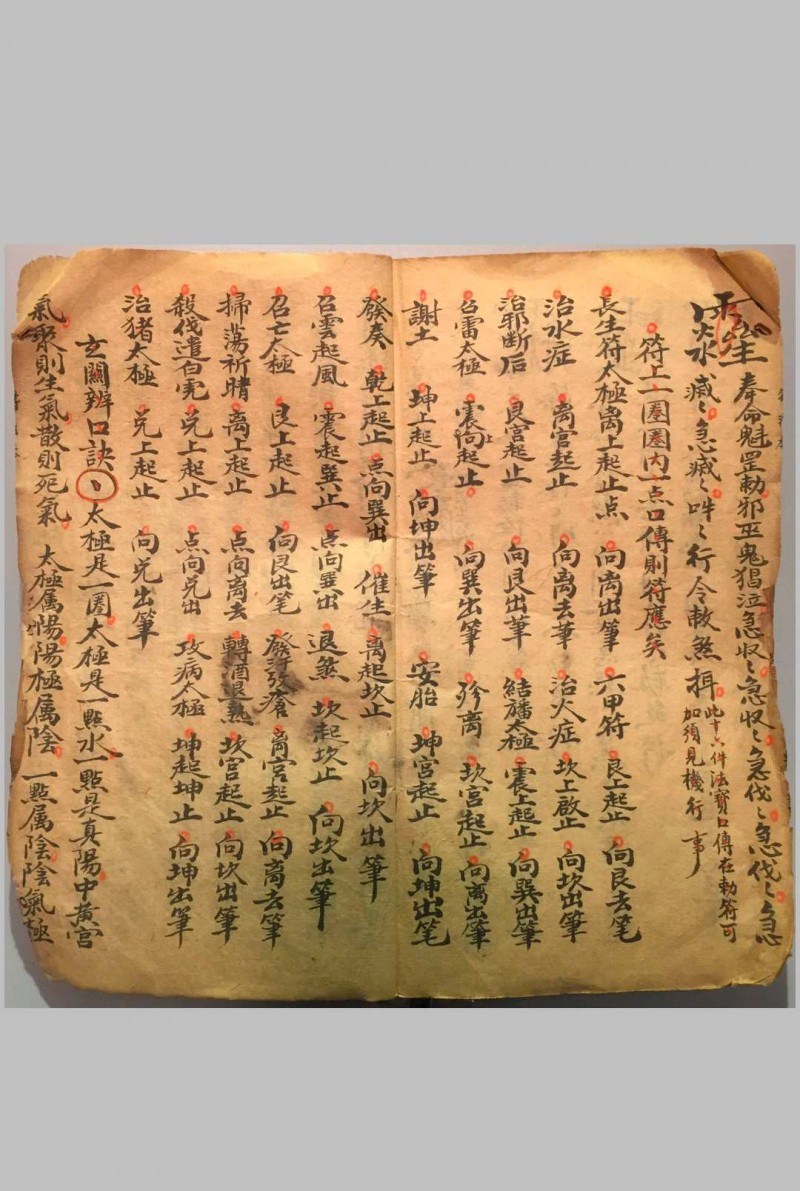 奉命魁罡勅邪巫鬼猖泣急収〻急収〻急伐〻急伐〻急
滅〻急滅〻吽〻行令敕煞摄
此十六件法寳口傳在勅符可
加須見機行事
符上一圏圏内一点口傳則符應矣
長生符太極离上起止点 向离出筆 六甲符 艮上起止 向艮去笔
治水症 离宫起止 向离去筆 治火症 坎上啟止 向坎出筆
治邪断后 艮宫起止 向艮出筆 結旛太極 震上起止 向巽出筆
召雷太極 震向上起止 向巽出筆 殄离 坎宫起止 向离出筆
謝土 坤上起止 向坤出筆 安胎 坤宫起止 向坤出笔
發奏 乾上起止 点向巽出 催生 离起坎止 向坎出筆
召雲起風 震起巽止 点向巽出 退煞 坎起坎止 向坎出筆
召亡太極 艮上起止 向艮出笔 發汗孜瘡 离宫起止 向离去筆
掃荡祈晴 离上起止 点向离去 轉酉退熱 坎宫起止 向坎出筆
殺伐遣白虎 兑上起止 点向兑出 攻病太極 坤起坤止 向坤出筆
治猪太極 兑上起止 向兑出筆
玄關辨口訣 太極是一圏太極是一點水一點是真陽中黄宫
氣聚則生氣散則死氣 太極属陽陽極属陰 一點属陰陰氣極